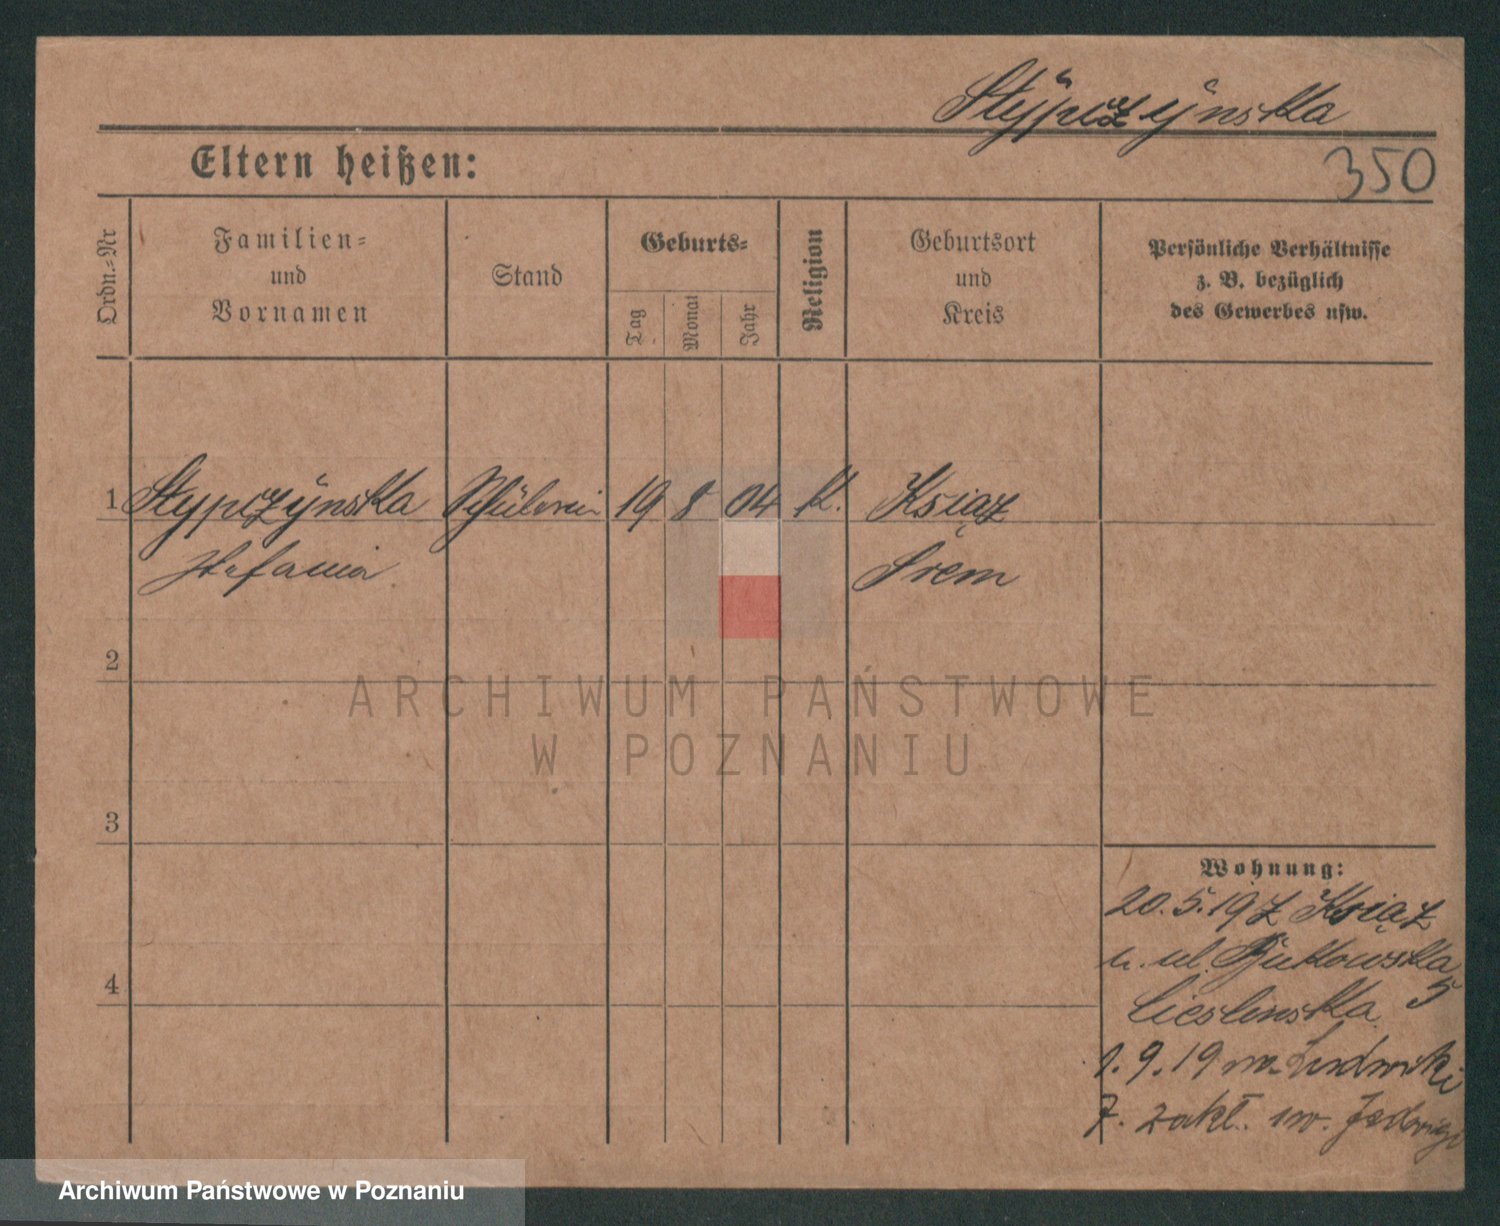 Stypczynska
350
Eltern heißen:
Ordn.-Nr
Familien-
und
Vornamen
Stand
Geburts-
Tag
Monat
Jahr
Religion
Geburtsort
und
Kreis
Persönliche Verhältnisse
z. B. bezüglich
des Gewerbes usw.
1 Stypczynska Schülerin 19 8 04 k. Książ
Stefania Śrem
2
3
4
Wohnung:
20.5.19 z Książ
n. ul. Bukowska
5
Cieslinska
1.9.19 na Ludwiki
7. zakł. św. Jadwigi
ARCHIWUM PAŃSTWOWE
W POZNANIU
Archiwum Państwowe w Poznaniu